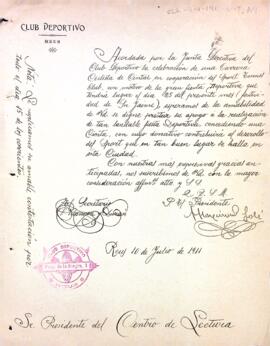 CLUB DEPORTIVO
REUS
Acordada por la Junta Directiva del
Club Deportivo la celebración de una Carrera
Ciclista de Cintas en cooperación del Sport Tennis
Club, con motivo de la gran fiesta Deportiva que
tendrá lugar el día 25 del presente mes (festivi-
dad de Sn Jaime), esperamos de la amabilidad
de Vd se digne prestar su apoyo a la realización
de tan notable fiesta Deportiva, concediendo una
Cinta, con cuyo donativo contribuirá al desarrollo
del Sport que en tan buen lugar se halla en
esta Ciudad.
Con nuestras más expresivas gracias an-
ticipadas, nos suscribimos de Vd con la mayor
consideración
El Secretario
Presidente
CLUB DEPORTIVO
Reus 10 de Julio de 1911
Sr Presidente del Centro de Lectura
Nota: Le suplicamos su amable contestación, por
todo el día 15 de los corrientes.